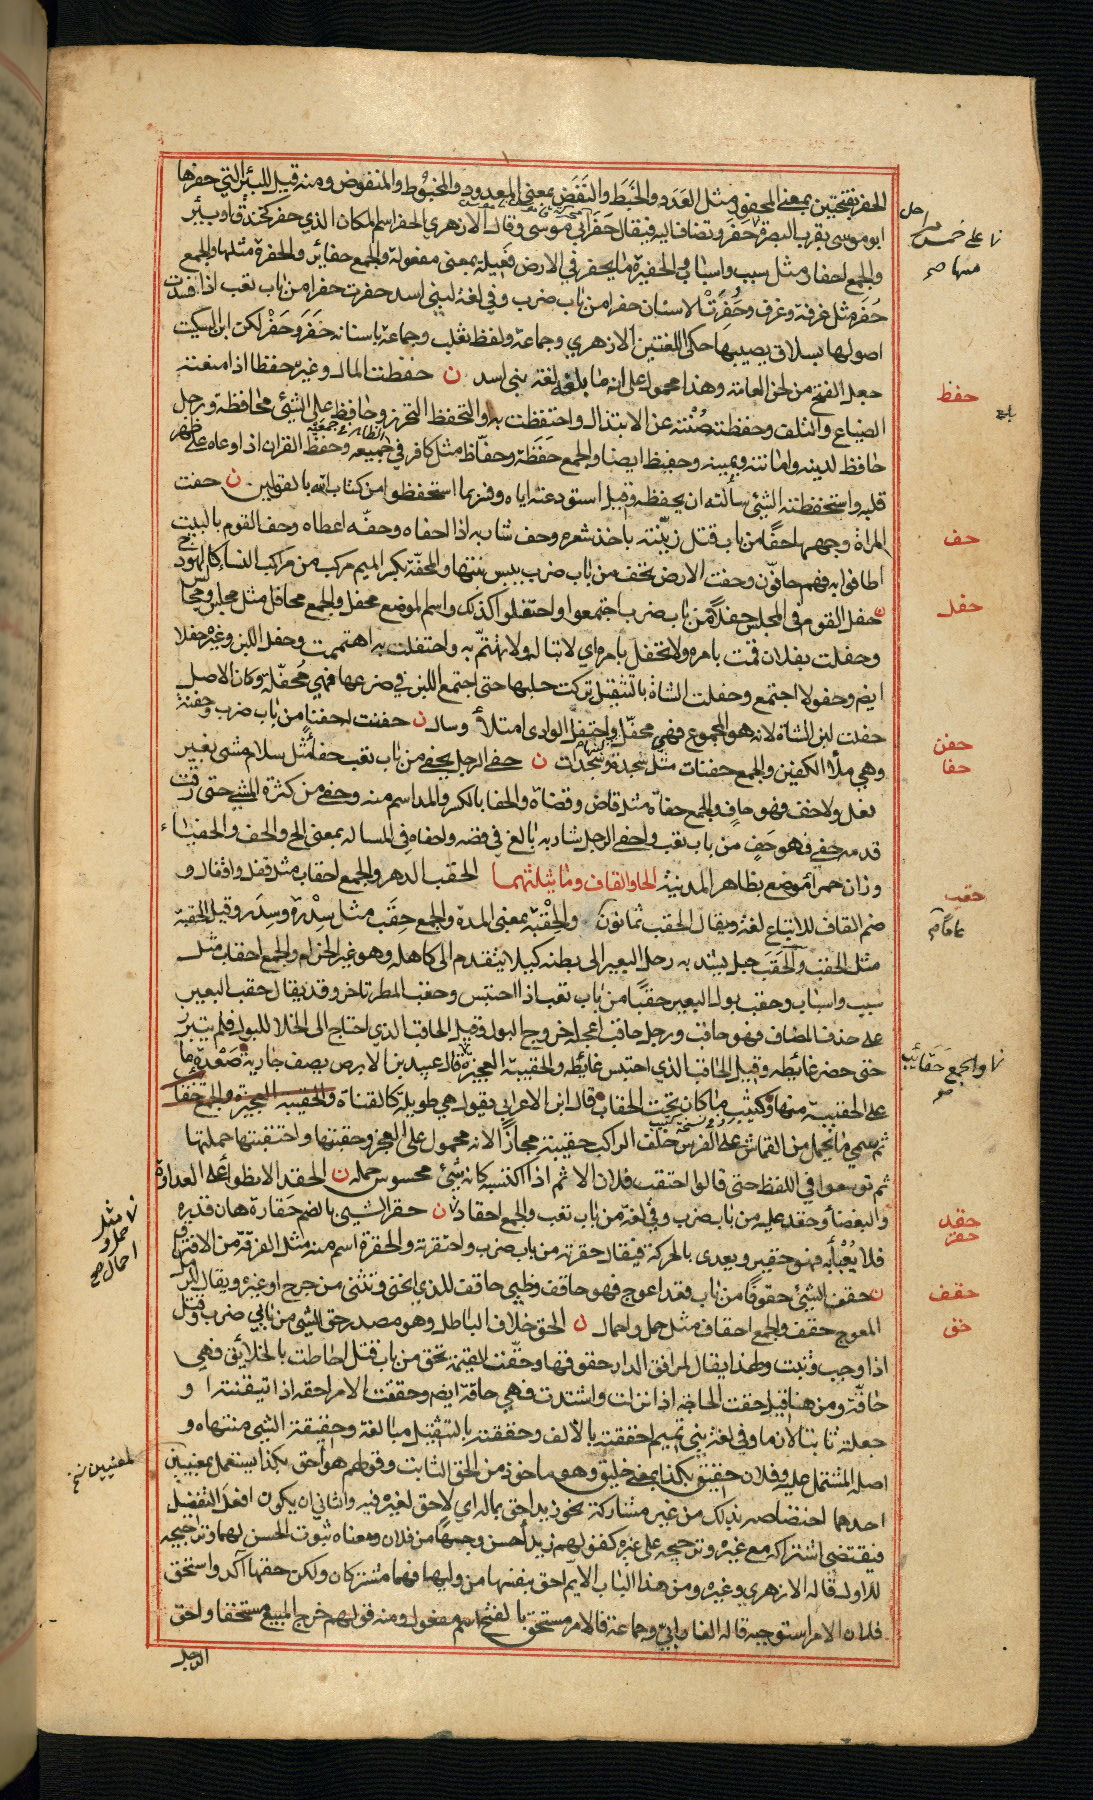 الحفر بفتحتين بمعنى المحفور مثل العدد والخبط والنفض بمعنى المعدود والمخبوط والمنفوض ومنه قيل للبئر التي حفرها
ابو موسى بقرب البصرة حفر وتضاف اليه فيقال حفر ابي موسى وقال الازهري الحفر اسم المكان الذي حفر كخندق او بير
والجمع احفار مثل سبب واسباب والحفيرة ما يحفر في الارض فعيلة بمعنى مفعولة والجمع حفاير والحفرة مثلها والجمع
حفر مثل غرفة وغرف وحفرت الاسنان حفرا من باب ضرب وفي لغة لبني اسد حفرت حفرا من باب تعب اذا فسدت
اصولها بسلاق يصيبها حكى اللغتين الازهري وجماعة ولفظ ثعلب وجماعة باسنانه حفر وحفر لكن ابن السكيت
جعل الفتح من لحن العامة وهذا محمول على انه ما بلغه لغة بني اسد ن حفظت المال وغيره حفظا اذا منعته
الضياع والتلف وحفظته صنته عن الابتذال واحتفظت به والتحفظ التحرز وحافظ على الشيء محافظة ورجل
حافظ لدينه وامانته ويمينه وحفيظ ايضا والجمع حفظة وحفاظ مثل كافر في جميعه وحفظ القران اذا وعاه على ظهر
قلبه واستحفظته الشيء سألته ان يحفظه وقيل استودعته اياه وفسر بما استحفظوا من كتاب الله بالقولين ن حفت
المراة وجهها حفا من باب قتل زينته باخذ شعره وحف شاربه اذا احفاه وحفه اعطاه وحف القوم بالبيت
اطافوا به فهم حافون وحفت الارض تحف من باب ضرب يبس نبتها والمحفة بكسر الميم مركب من مراكب النساء كالهودج
ن حفل القوم في المجلس حفلا من باب ضرب اجتمعوا واحتفلوا كذلك واسم الموضع محفل والجمع محافل مثل مجلس ومجالس
وحفلت بفلان قمت بامره ولا تحفل بامره اي لا تباله ولا تهتم به واحتفلت به اهتممت وحفل اللبن وغيره حفلا
ايضا وحفولا اجتمع وحفلت الشاة بالتثقيل تركت حلبها حتى اجتمع اللبن في ضرعها فهي محفلة وكان الاصل
حفلت لبن الشاة لانه هو المجموع فهو محفل واحتفل الوادي امتلأ وسال ن حفنت له حفنا من باب ضرب وحفنة
وهي ملأ الكفين والجمع حفنات مثل سجدة وسجدات ن حفي الرجل يحفى من باب تعب حفاء مثل سلام مشى بغير
نعل ولا خف فهو حاف والجمع حفاة مثل قاض وقضاة والحفا بالكسر والمد اسم منه وحفي من كثرة المشي حتى رقت
قدمه حفى فهو حف من باب تعب واحفى الرجل شاربه بالغ في قصه واحفاه في المسالة بمعنى الح والحف والحفياء
وزان حمراء موضع بظاهر المدينة الحا والقاف وما يثلثهما الحقب الدهر والجمع احقاب مثل قفل واقفال و
ضم القاف للاتباع لغة ويقال الحقب ثمانون والحقبة بمعنى المدة والجمع حقب مثل سدرة وسدر وقيل الحقبة
مثل الحقب والحقب حبل يشد به رحل البعير الى بطنه كيلا يتقدم الى كاهله وهو غير الحزام والجمع احقاب مثل
سبب واسباب وحقب بول البعير حقبا من باب تعب اذا احتبس وحقب المطر تاخر وقد يقال حقب البعير
على حذف المضاف فهو حاقب ورجل حاقب اعجله خروج البول وقيل الحاقب الذي احتاج الى الخلا للبول فلم يتبرز
حتى حضر غائطه وقيل الحاقب الذي احتبس غائطه والحقيبة العجيزة قال عبيد بن الابرص يصف جارية صعدة ما
على الحقيبة منها وكثيب ما كان تحت الحقاب قال ابن الاعرابي يقول هي طويلة كالقناة والحقيبة العجيزة والجمع حقا
ثم سمي ما يحمل من القماش على الفرس خلف الراكب حقيبة مجازا لانه محمول على العجز وحقبتها واحتقبتها حملتها
ثم توسعوا في اللفظ حتى قالوا احتقب فلان الاثم اذا اكتسبه كانه شيء محسوس حمله ن الحقد الانطواء على العداوة
والبغضاء وحقد عليه من باب ضرب وفي لغة من باب تعب والجمع احقاد ن حقر الشيء بالضم حقارة هان قدره
فلا يعبأ به فهو حقير ويعدى بالحركة فيقال حقرته من باب ضرب واحتقرته والحقرة اسم منه مثل الفرقة من الافتراق
ن حقف الشيء حقوفا من باب قعد اعوج فهو حاقف وظبي حاقف للذي انحنى وتثنى من جرح او غيره ويقال للرمل
المعوج حقف والجمع احقاف مثل حمل واحمال ن الحق خلاف الباطل وهو مصدر حق الشيء من بابي ضرب وقتل
اذا وجب وثبت ولهذا يقال لمرافق الدار حقوقها وحقت القيمة تحق من باب قتل احاطت بالخلائق فهي
حاقة ومن هنا قيل حقت الحاجة اذا نزلت واشتدت فهي حاقة ايضا وحققت الامر احقه اذا تيقنته او
جعلته ثابتا لازما وفي لغة بني تميم احققته بالالف وحققته بالتثقيل مبالغة وحقيقة الشيء منتهاه و
اصله المشتمل عليه وفلان حقيق بكذا بمعنى خليق وهو ماخوذ من الحق الثابت وقولهم هو احق بكذا يستعمل بمعنيين
احدهما اختصاصه بذلك من غير مشاركة نحو زيد احق بماله اي لا حق لغيره فيه والثاني ان يكون افعل التفضيل
فيقتضي اشتراكه مع غيره وترجيحه على غيره كقولهم زيد احسن وجها من فلان ومعناه ثبوت الحسن لهما وترجيحه
للاول قاله الازهري وغيره ومن هذا الباب الايم احق بنفسها من وليها فهما مشتركان ولكن حقها آكد واستحق
فلان الامر استوجبه قاله الفارابي وجماعة فالامر مستحق بالفتح اسم مفعول ومنه قولهم خرج المبيع مستحقا واحق
الرجل
حفظ
حف
حفل
حفن
حفا
حقب
عاما
حقد
حقر
حقف
حق
والجمع حقائب
مثل حمل و
احمال صح
لمعنيين نسخ